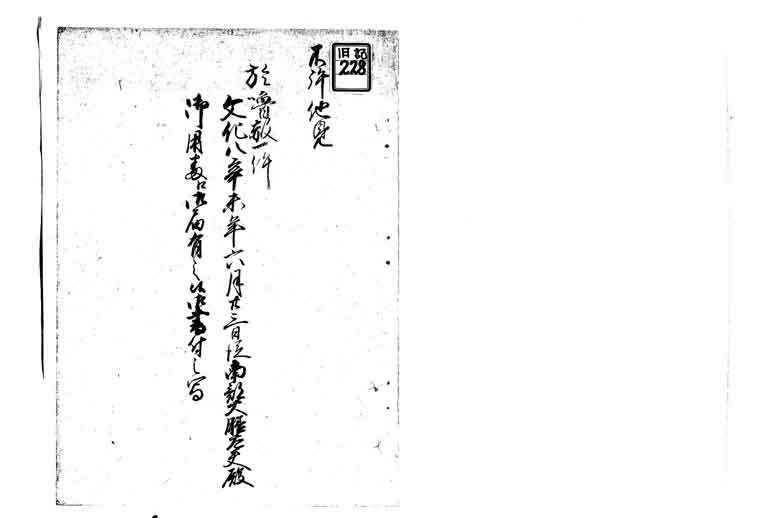 旧記
228
不許他見
於一件
文化八辛未年六月廿三日従南部大膳大夫殿
御用番江御届有之候御書付之写